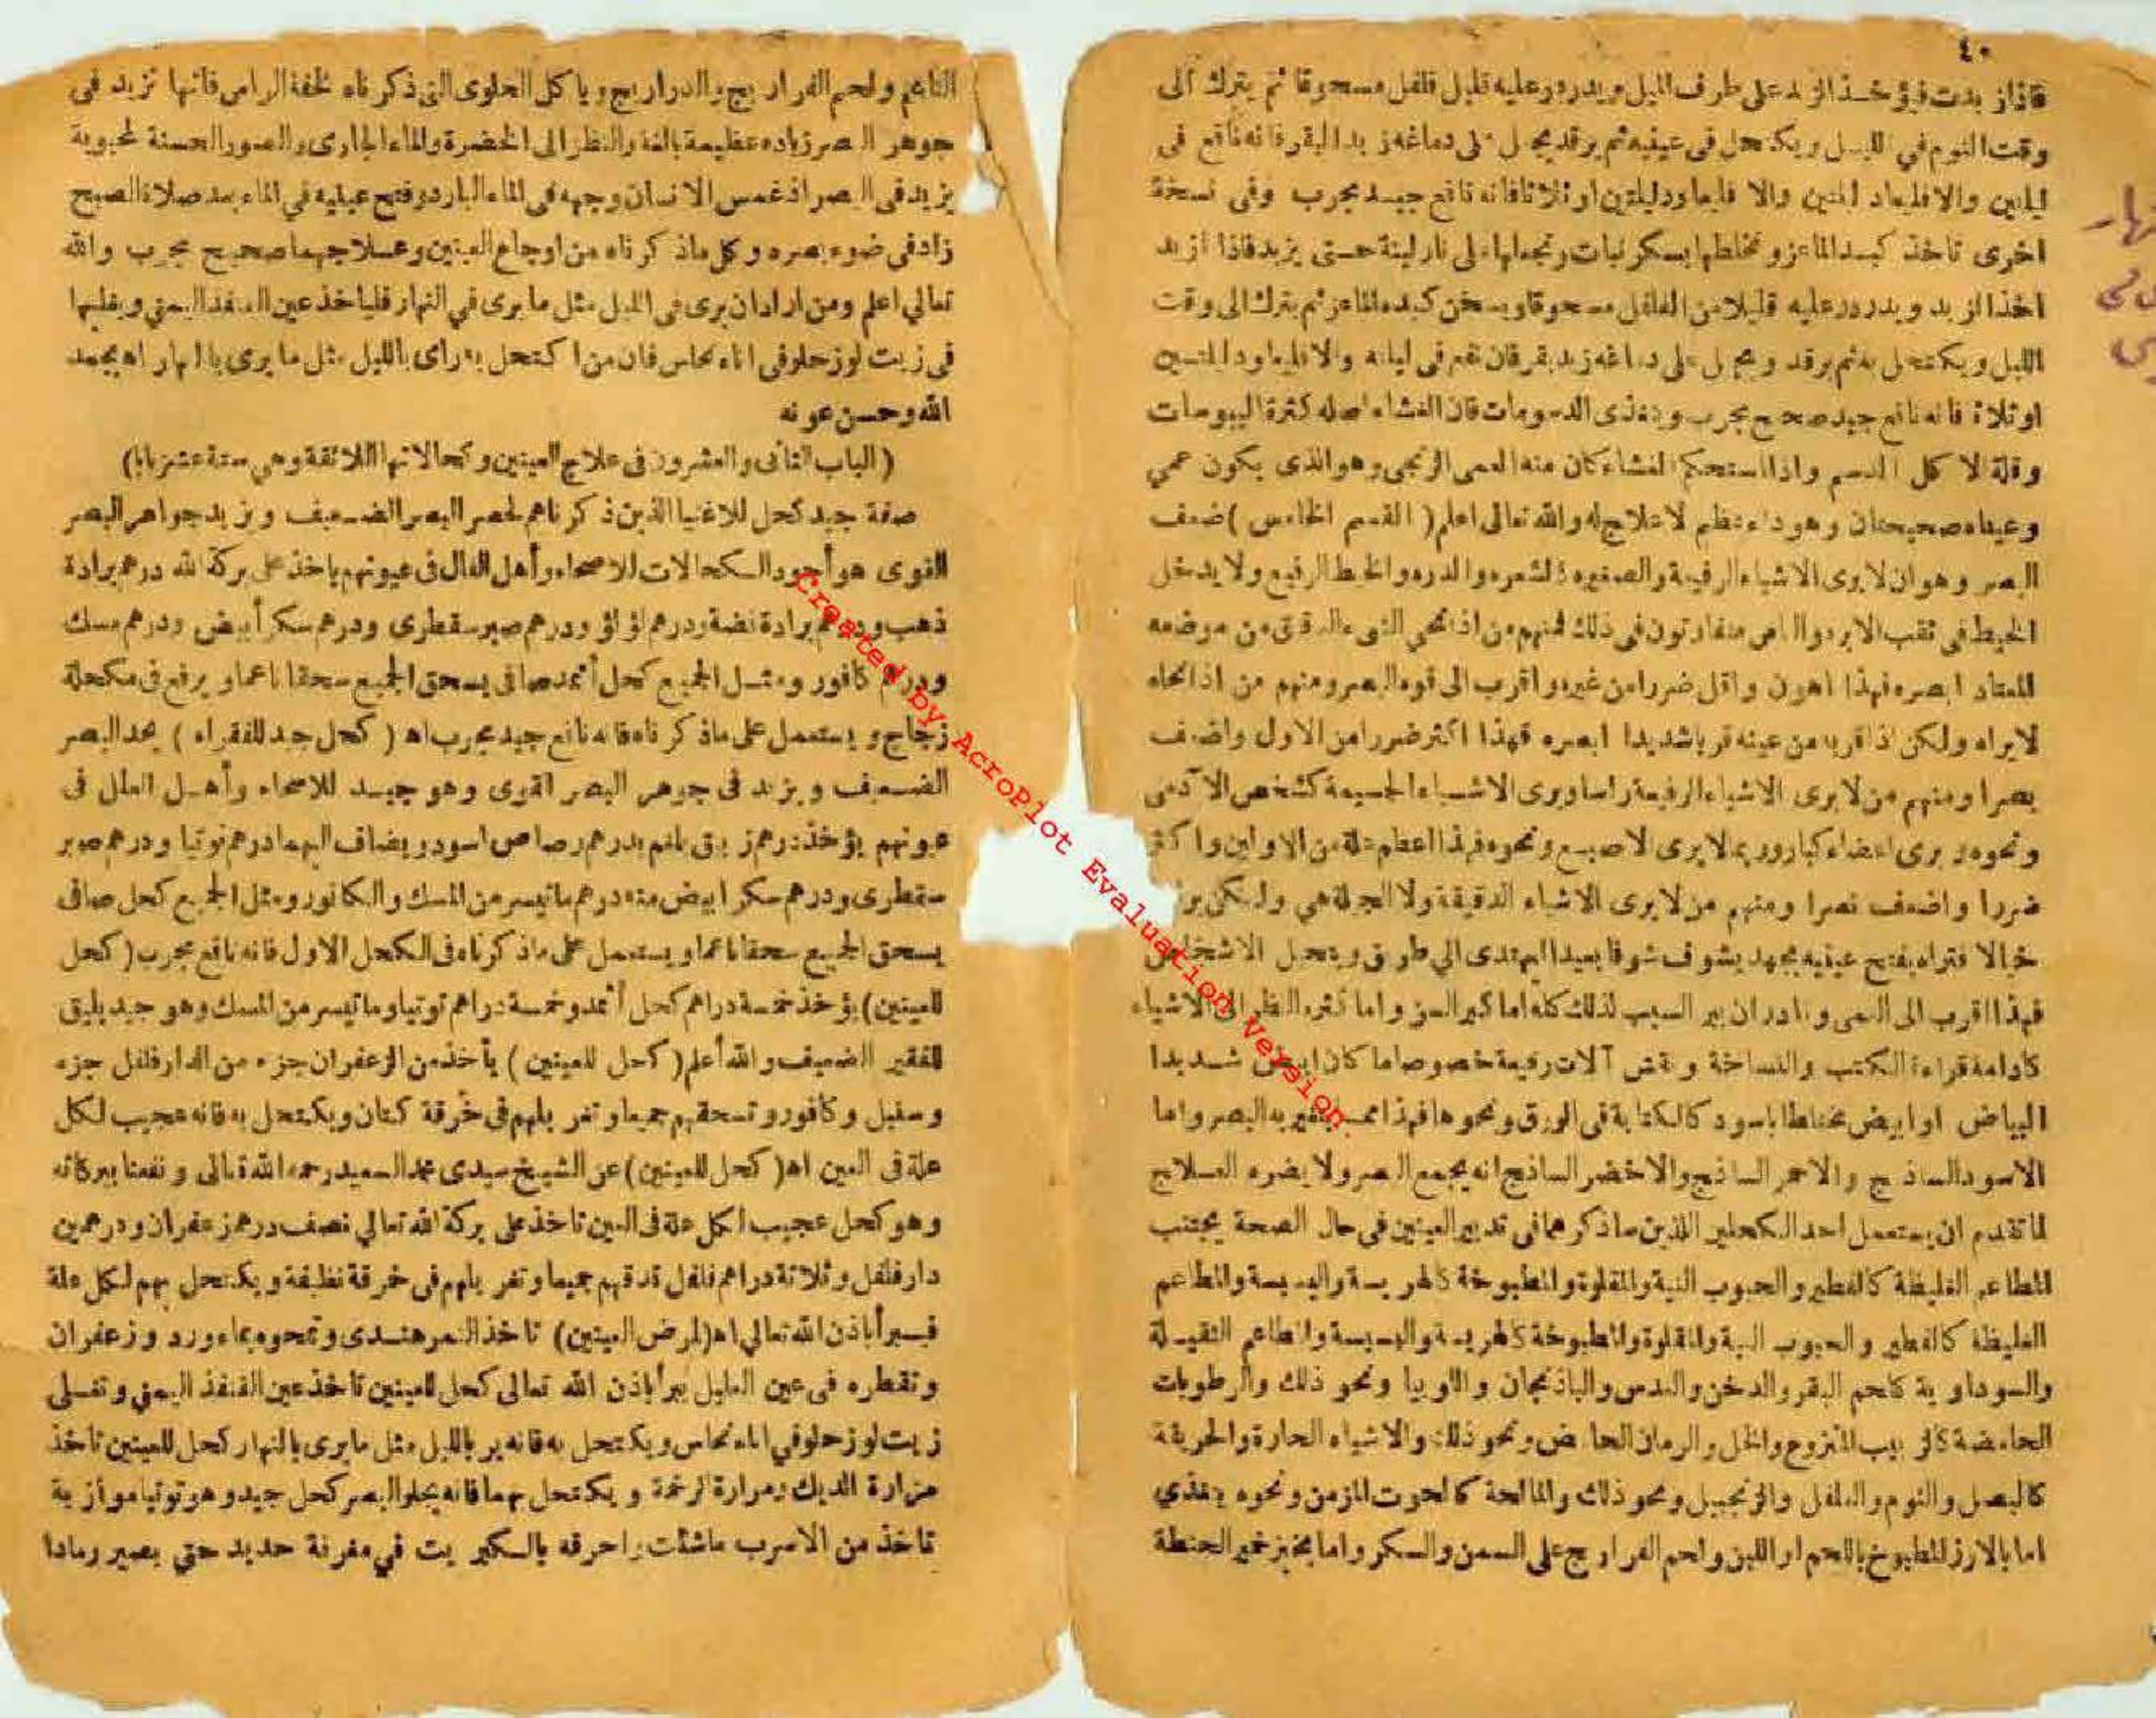 ٤٠
فاذا ازبدت فيؤخذ الزبد على طرف الميل ويدردر عليه قليل فلفل مسحوقا ثم يترك الى
وقت النوم في الليل ويكتحل في عينيه ثم يرقد يجعل على دماغه زبد البقر فانه نافع في
ليلتين والا فليعاود ليلتين او ثلاثا فانه نافع جيد مجرب وفى نسخة
اخرى تاخذ كبد الماعز وتخلطها بسكر نبات وتجعلها على نار لينة حتى يزبد فاذا ازبد
اخذ الزبد ويدردر عليه قليلا من الفلفل مسحوقا ويسخن كبدة الماعز ثم يترك الى وقت
الليل ويكتحل به ثم يرقد ويجعل على دماغه زبد بقر فان نفع في ليلته والا فليعاود ليلتين
او ثلاثة فانه نافع جيد صحيح مجرب ويتغذى الدسومات فان الغشاء اصله كثرة اليبوسات
وقلة لا كل الدسم واذا استحكم الغشاء كان منه العمى الزنجى وهو الذى يكون عمى
وعيناه صحيحتان وهو داء عظيم لا علاج له والله تعالى اعلم (القسم الخامس) ضعف
البصر وهو ان لا يرى الاشياء الرفيعة والصغيرة كالشعره والدره والخيط الرفيع ولا يدخل
الخيط في ثقب الابره والناس متفاوتون في ذلك فمنهم من اذا نحى الشىء الدقيق من موضعه
المعتاد ابصره فهذا اهون واقل ضررا من غيره واقرب الى قوة البصر ومنهم من اذا نحاه
لا يراه ولكن اذا قربه من عينه قربا شديدا ابصره فهذا اكثر ضررا من الاول واضعف
بصرا ومنهم من لا يرى الاشياء الرفيعة راسا ويرى الاشياء الجسيمة كشخص الآدمى
ونحوه ويرى اعضاء كبارا وربما لا يرى الاصبع ونحوه فهذا اعظم علة من الاولين واكثر
ضررا واضعف بصرا ومنهم من لا يرى الاشياء الدقيقة ولا الجملة هى ولكن يرى
خيالا فتراه يفتح عينيه بجهد يشوف شوفا بعيدا ليهتدى الي طريق ويتحيل الاشخاص
فهذا اقرب الى العمى ونادر ان يبر السبب لذلك كله اما كبر السن واما كثرة النظر الى الاشياء
كادامة قراءة الكتب والنساخة ونقش آلات رفيعة خصوصا ما كان ابيض شديدا
البياض او ابيض مختلطا باسود كالكتابة في الورق ونحوها فهذا مما يتغير به البصر واما
الاسود الساذج والاحمر الساذج والاخضر الساذج انه يجمع البصر ولا يضره العلاج
لما تقدم ان يستعمل احد الكحلين اللذين ساذكرهما في تدبير العينين في حال الصحة يجتنب
المطاعم الغليظة كالفطير والحبوب النية والمقلوة والمطبوخة كالهريسة والبسيسة والمطاعم
الغليظة كالفطير والحبوب النية والمقلوة والمطبوخة كالهريسة والبسيسة والمطاعم الثقيلة
والسوداوية كلحم البقر والدخن والعدس والباذنجان واللوبيا ونحو ذلك والرطوبات
الحامضة كالزبيب المنزوع والخل والرمان الحامض ونحو ذلك والاشياء الحارة والحريفة
كالبصل والثوم والفلفل والزنجبيل ونحو ذلك والمالحة كالحوت المزمن ونحوه يتغذى
اما بالارز المطبوخ باللحم او اللبن ولحم الفراريج على السمن والسكر واما بخبز خمير الحنطة
الناعم ولحم الفراريج والدراريج وياكل الحلوى التى ذكرناه لخفة الراس فانها تزيد في
جوهر البصر زياده عظيمة بالغة والنظر الى الخضرة والماء الجارى والصور الحسنة المحبوبة
يزيد في البصر اذ غمس الانسان وجهه في الماء البارد وفتح عينيه في الماء بعد صلاة الصبح
زاد في ضوء بصره وكل ما ذكرناه من اوجاع العينين وعلاجهما صحيح مجرب والله
تعالي اعلم ومن اراد ان يرى في الليل مثل ما يرى في النهار فلياخذ عين القنفذ اليمني ويقليها
في زيت لوز حلو في اناء نحاس فان من اكتحل به راى بالليل مثل ما يرى بالنهار اه بحمد
الله وحسن عونه
(الباب الثانى والعشرون في علاج العينين وكحالاتها اللائقة وهي ستة عشر بابا)
صفة جيد كحل للاغنيا الذين ذكرناهم لحصر البصر الضعيف ويزيد جواهر البصر
القوى هو أجود الكحالات للاصحاء وأهل العلل في عيونهم ياخذ على بركة الله درهم برادة
ذهب ودرهم برادة فضة ودرهم لؤلؤ ودرهم صبر سقطرى ودرهم سكر أبيض ودرهم مسك
ودرهم كافور ومثل الجميع كحل أثمد صافى يسحق الجميع سحقا ناعما ويرفع في مكحلة
زجاج ويستعمل على ما ذكرناه فانه نافع جيد مجرب اه (كحل جيد للفقراء) يحد البصر
الضعيف ويزيد في جوهر البصر القوى وهو جيد للاصحاء وأهل العلل في
عيونهم يؤخذ درهم زيبق يلغم بدرهم رصاص اسود ويضاف اليهما درهم توتيا ودرهم صبر
سقطرى ودرهم سكر ابيض منه درهم ما تيسر من المسك والكافور ومثل الجميع كحل صافى
يسحق الجميع سحقا ناعما ويستعمل على ما ذكرناه في الكحل الاول فانه نافع مجرب (كحل
للعينين) يؤخذ خمسة دراهم كحل أثمد وخمسة دراهم توتيا وما تيسر من المسك وهو جيد يليق
للفقير الضعيف والله أعلم (كحل للعينين) يأخذ من الزعفران جزء من الدار فلفل جزء
وسنبل وكافور وتسحقهم جميعا وتغربلهم في خرقة كتان ويكتحل به فانه عجيب لكل
علة في العين اه (كحل للعينين) عن الشيخ سيدى محمد السعيد رحمه الله تعالى ونفعنا ببركاته
وهو كحل عجيب لكل علة في العين تاخذ على بركة الله تعالي نصف درهم زعفران ودرهمين
دار فلفل وثلاثة دراهم فلفل تدقهم جميعا وتغربلهم في خرقة نظيفة ويكتحل بهم لكل علة
فيبرأ باذن الله تعالي اه (لمرض العينين) تاخذ التمر هندى وتمحوه بماء ورد وزعفران
وتقطره في عين العليل يبرأ باذن الله تعالى كحل للعينين تاخذ عين القنفذ اليمني وتغسلى
زيت لوز حلو في اناء نحاس ويكتحل به فانه ير بالليل مثل ما يرى بالنهار كحل للعينين تاخذ
مزارة الديك ومرارة الرخمة ويكتحل بهما فانه يجلو البصر كحل جيد وهو توتيا موازية
تاخذ من الاسرب ماشئت واحرقه بالكبريت في مغرفة حديد حتي يصير رمادا
Created by AcroPlot Evaluation Version.